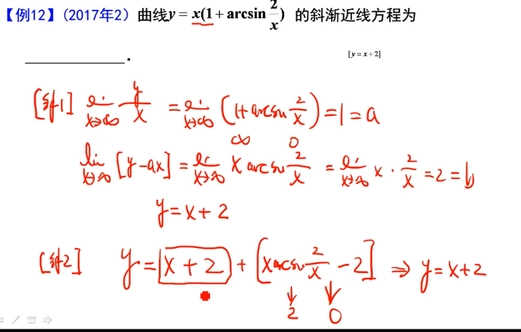 【例12】(2017年2) 曲线y = x(1 + arcsin 2/x) 的斜渐近线方程为
____________.
[y = x + 2]
[解1] lim x→∞ y/x = lim x→∞ (1+arcsin 2/x) = 1 = a
∞ 0
lim x→∞ [y-ax] = lim x→∞ x arcsin 2/x = lim x→∞ x · 2/x = 2 = b
y = x + 2
[解2] y = x + 2 + [x arcsin 2/x - 2] ⇒ y = x+2
↓ ↓
2 0